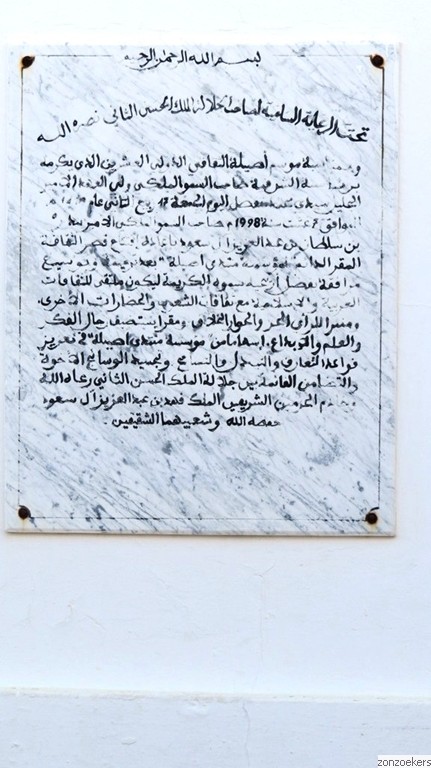 بسم الله الرحمن الرحيم
تحت الرعاية السامية لصاحب الجلالة الملك الحسن الثاني نصره الله
وبمناسبة موسم أصيلة الثقافي الدولي العشرين الذي يكرمه
برئاسته الشرفية صاحب السمو الملكي ولي العهد الأمير
الجليل سيدي محمد تفضل اليوم الجمعة 17 ربيع الثاني عام
الموافق 7 غشت سنة 1998م صاحب السمو الملكي الأمير بندر
بن سلطان بن عبد العزيز آل سعود بافتتاح قصر الثقافة
المقر الدائم لمؤسسة منتدى أصيلة
موافقة تفضل سموه الكريمة ليكون ملتقى للثقافات
العربية والإسلامية مع ثقافات الشعوب والحضارات الأخرى.
ومنبرا للرأي الحر والحوار الخلاق ومقرا يستضيف رجال الفكر
والعلم والإبداع. إسهاما من مؤسسة منتدى أصيلة في تعزيز
قواعد التعارف والتبادل والتسامح وتجسيد الوشائج الأخوة
والتضامن القائمة بين جلالة الملك الحسن الثاني رعاه الله
وخادم الحرمين الشريفين الملك فهد بن عبد العزيز آل سعود
حفظه الله وشعبيهما الشقيقين.
zonzoekers